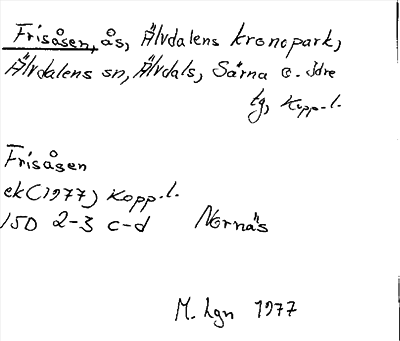 Frisåsen, ås, Älvdalens kronopark,
Älvdalens sn, Älvdals, Särna o. Idre
tg, Kopp.l.
Frisåsen
ek(1977) Kopp.l.
15D 2-3 c-d Nornäs
M. Lgn 1977